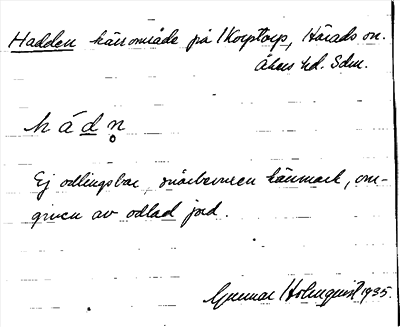 Hadden kärrområde på Korptorp, Härads sn.
Åkers hd. Sdm.
hádn̥
Ej odlingsbar, snårbevuxen kärrmark, om-
given av odlad jord.
Gunnar Holmquist 1935.